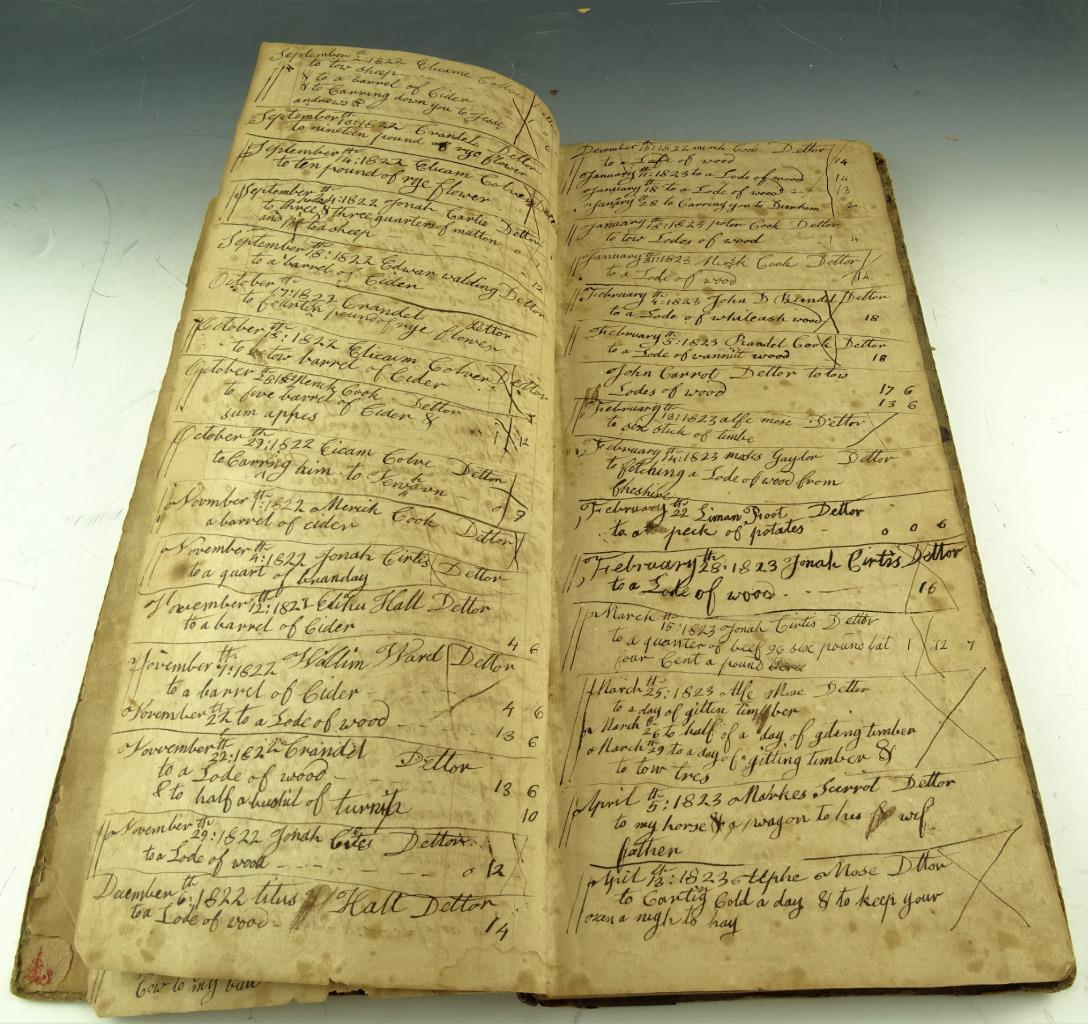 September th 1822 Elicame Colver
to tow sheep
& to a barrel of Cider
& to Carring down you to
andrews
September th 13:1822 Crandels Dettor
to ninetin pound of rye flower
September th 14:1822 Elicam Colver
to ten pound of rye flower
September 1822 Jonah Cartis Dettor
to three & three quarters of mutton
and to a sheep
September th 18:1822 Edwar walding Dettor
to a barrel of Cider 12
October th 1822 Crandel Dettor
to fourtin pound of rye flower
October th 18:1822 Elicaim Colver Dettor
to tow barrel of Cider
October th 28:1822 Merich Cook Dettor
to five barrel of Cider & 1 12
sum appes
October th 29:1822 Eicam Colve Dettor
to Carring him to
November th 1:1822 Merich Cook Dettor
a barrel of cider
November th 4:1822 Jonah Cirtis Dettor
to a quart of branday
November th 12:1822 Elihu Hall Dettor
to a barrel of Cider 4 6
November th 1822 Wallim Ward Dettor
to a barrel of Cider 4 6
November th 22 to a Lode of wood 13 6
November th 22:1822 Crandel Dettor
to a Lode of wood 13 6
& to half a bushil of turnip 10
November th 29:1822 Jonah Dettor
to a Lode of wood 0 12
December th 6:1822 titus Hall Dettor
to a Lode of wood 14
Cow to my
December th 13:1822 merich Cook Dettor
to a Lode of wood 14
January th 1823 to a Lode of wood 14
January th 18 to a Lode of wood 13
January 28 to Carring you to Durham 2
January th 18:1823 peter Cook Dettor
to tow Lodes of wood 1 4
January th 1823 Merich Cook Dettor
to a Lode of wood 14
February th 4:1823 John D Dettor
to a Lode of whiteash wood 18
February th 5:1823 Crandel Cook Dettor
to a Lode of wannut wood 18
John Carrot Dettor to tow
Lodes of wood 17 6
13 6
February th 13:1823 alfe mose Dettor
to six stick of timbe
February th 14:1823 moses Gaylor Dettor
to fetching a Lode of wood from
Cheshire
February th 22 Liman Root Dettor
to a peck of potates 0 0 6
February th 28:1823 Jonah Cirtis Dettor
to a Lode of wood 16
March th 15:1823 Jonah Cirtis Dettor
to a quarter of beef 96 six pound bat 1 12 7
four Cent a pound
March th 25:1823 Alfe Mose Dettor
to a day of gitten timber
March th 26 to half of a day of giting timber
March th 29 to a day of gitting timber &
to tow tres
April th 5:1823 Markes Dettor
to my horse & wagon to his wif
father
April th 13:1823 Alphe Mose Dettor
to Cold a day & to keep your
oxen a nigh to hay